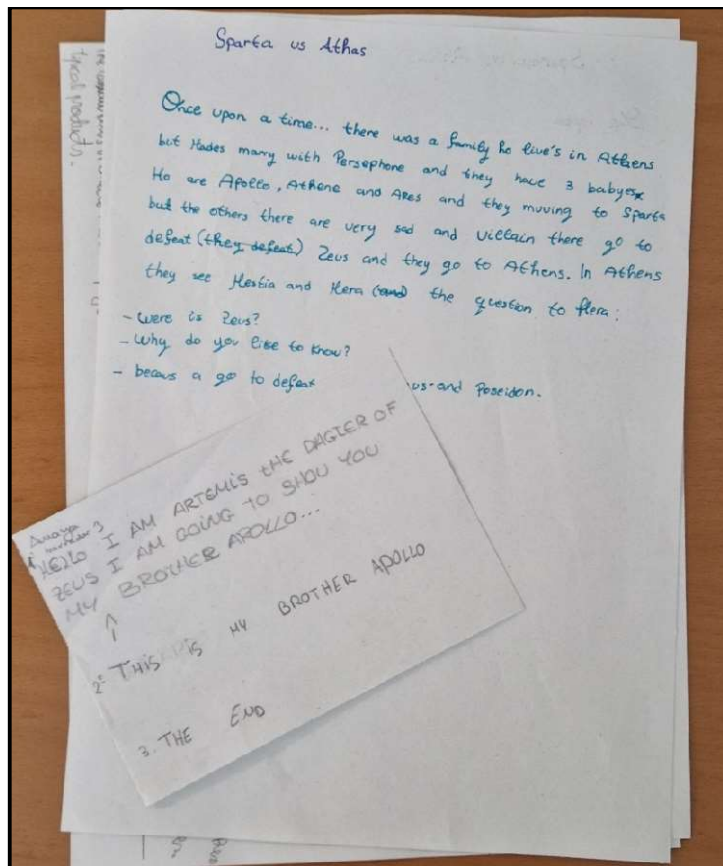 Sparta us Athas
Once upon a time... there was a family ho live's in Athens
but Hades marry with Persephone and they have 3 babyes
Ho are Apollo, Athene and Ares and they muving to Sparta
but the others there are very sad and villain there go to
defeat (they defeat) Zeus and they go to Athens. In Athens
they see Hestia and Hera (and) the question to Hera:
- Were is Zeus?
- Why do you like to know?
- becaus a go to defeat us and Poseidon.
Amaya
3
1. HELLO I AM ARTEMIS tHE DAGTER OF
ZEUS I AM GOING TO SHOU YOU
MY BROTHER APOLLO...
2. THIS iS MY BROTHER APOLLO
3. THE END
typical products.